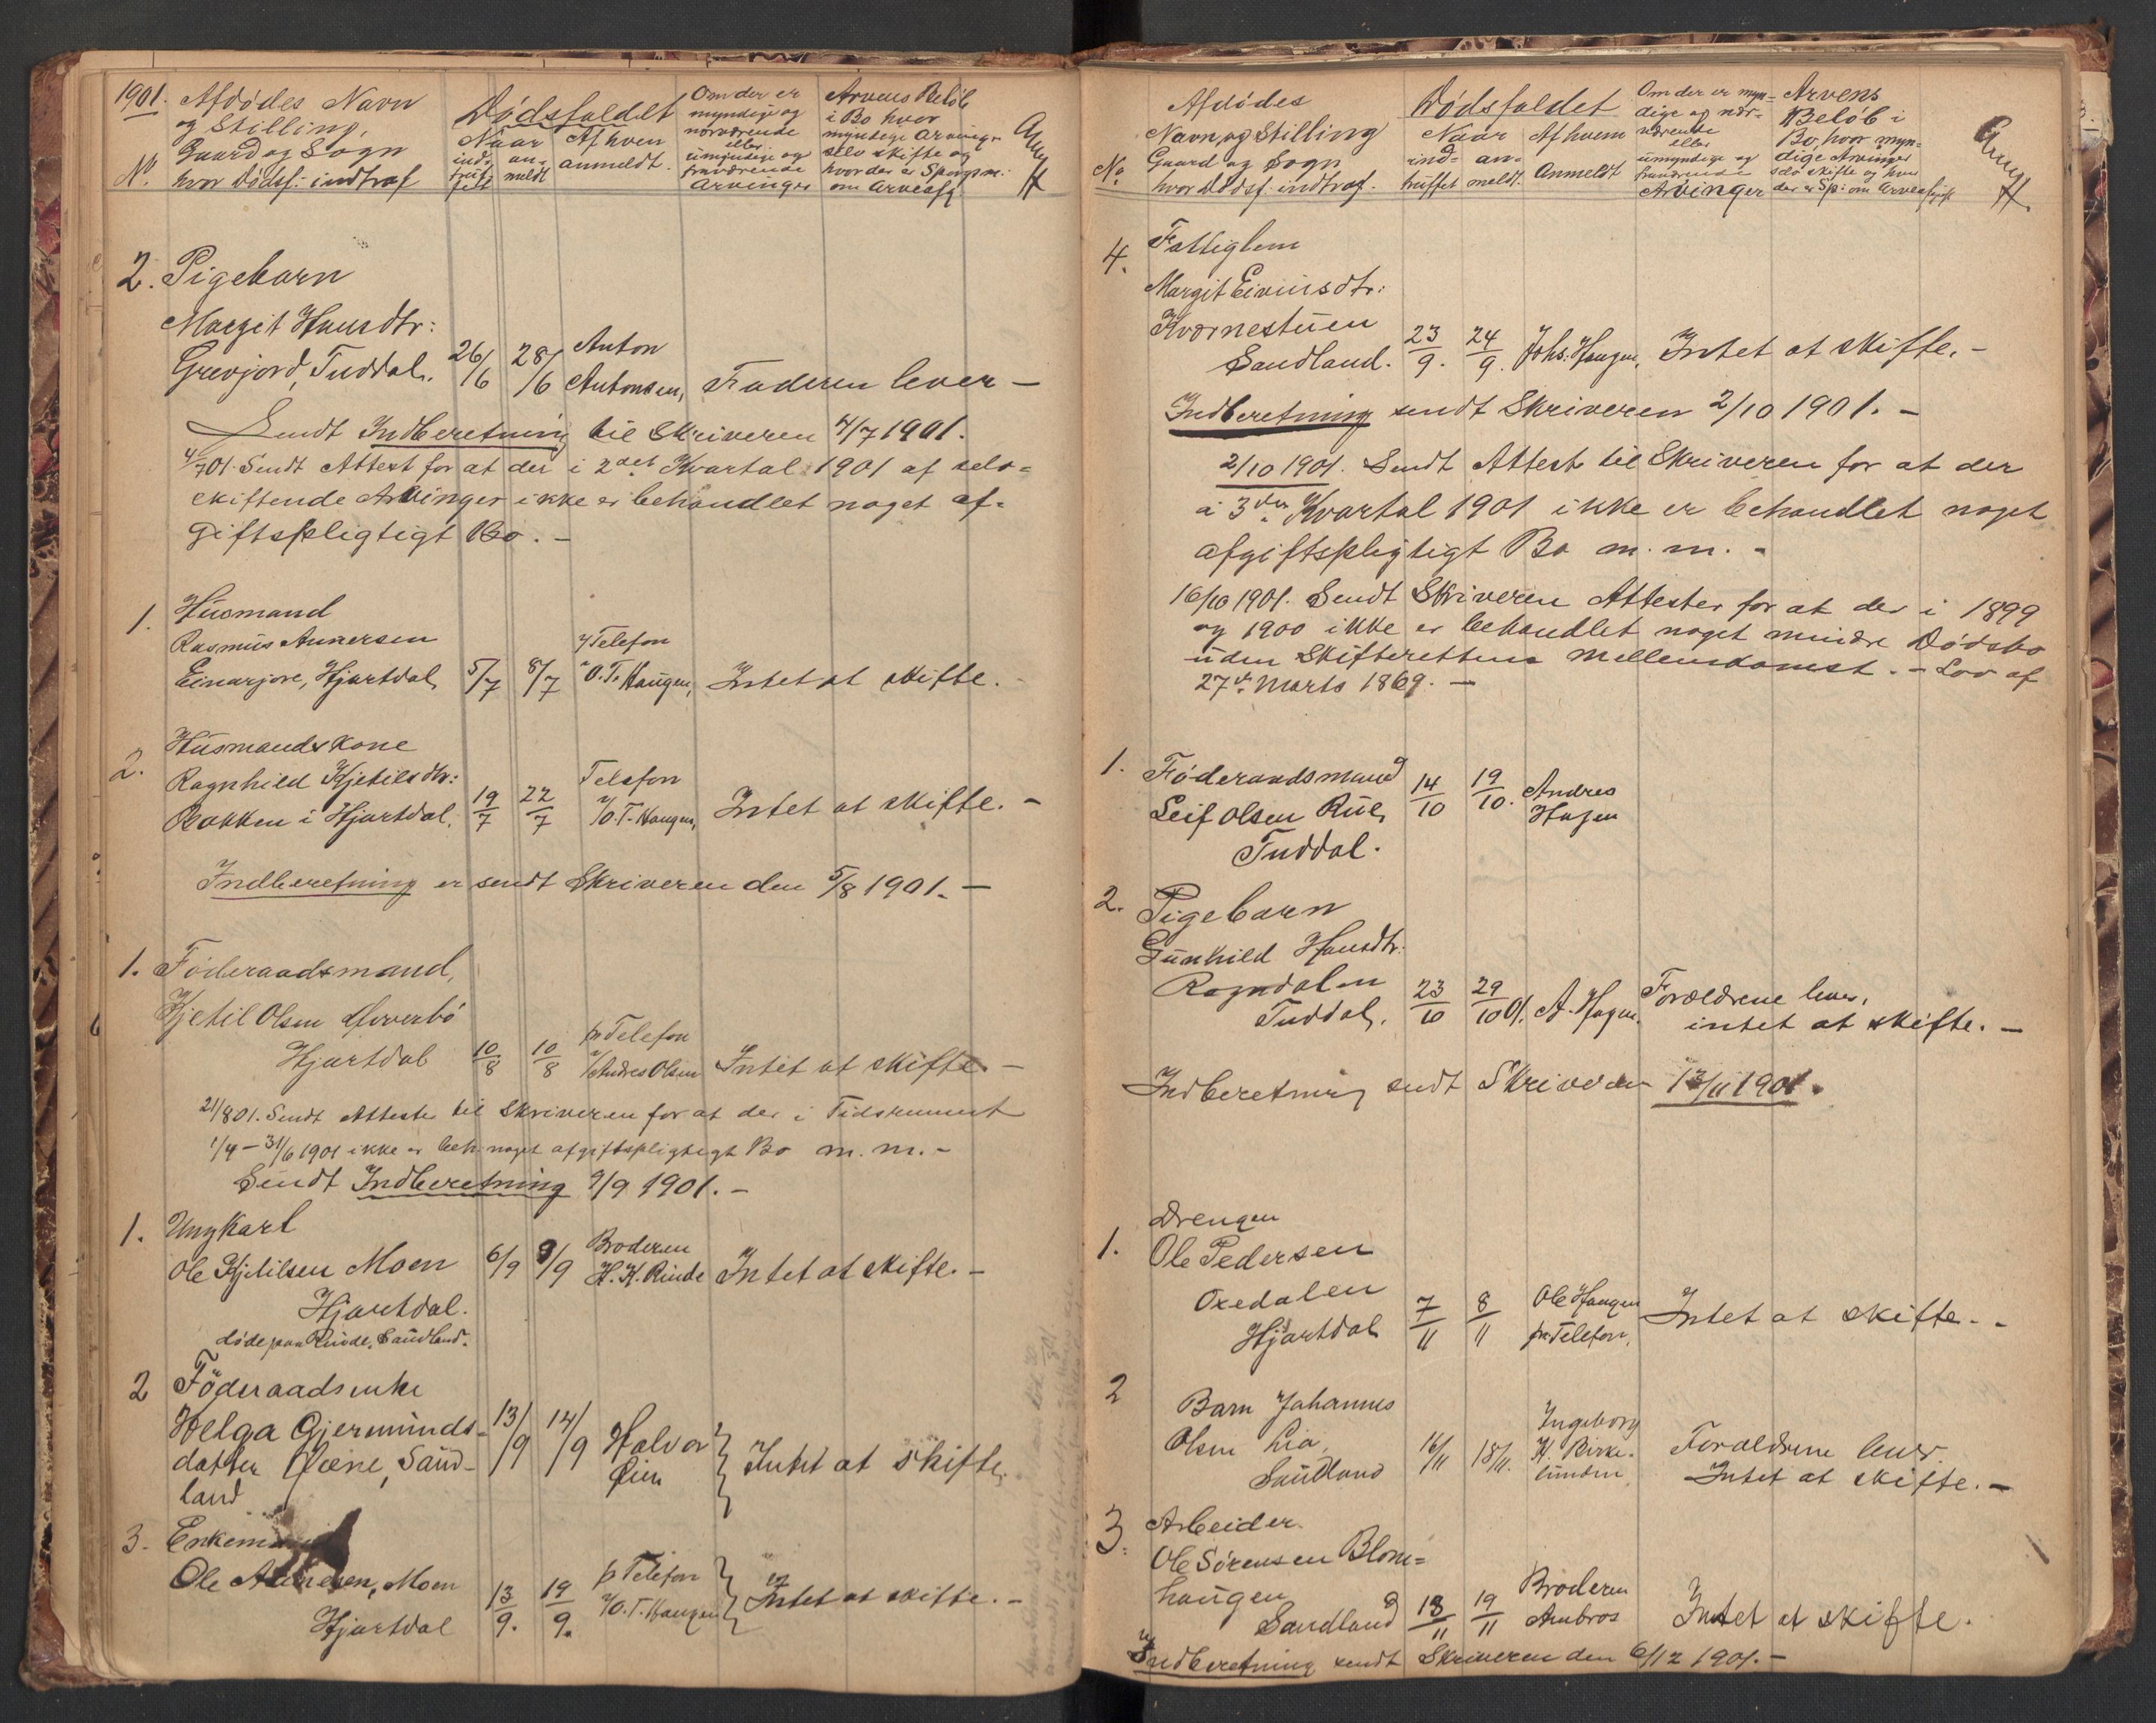 1901. Afdödes Navn
og Stilling,
Gaard og Sogn
No. hvor Dödsf: indtraf
Dödsfaldet
Naar
ind-
truffet
an-
meldt
Af hvem
anmeldt.
Om der er
myndige og
nærværende
eller
umyndige og
fraværende
Arvinger
Arvens Belöb
i Bo hvor
myndige Arvinger
selv skifte og
hvor der er Spørgsm:
om Arveafg.
Anm
2. Pigebarn
Margit Hansdtr:
Grevjord, Tuddal. 26/6 28/6 Anton
Antonsen, Faderen lever —
Sendt Indberetning til Skriveren 4/7 1901.
4/7 01. Sendt Attest for at der i 2det Kvartal 1901 af selv=
skiftende Arvinger ikke er behandlet noget af=
giftspligtigt Bo. —
1. Husmand
Rasmus Aunersen
Einarjore, Hjartdal, 5/7 8/7 v/Telefon
O. T. Haugen, Intet at skifte.
2. Husmandskone
Ragnhild Kjetilsdtr:
Bakken i Hjartdal. 19/7 22/7 Telefon
v/O. T. Haugen, Intet at skifte. —
Indberetning er sendt Skriveren den 5/8 1901. —
1. Föderaadsmand,
Kjetil Olsen Øverbö
Hjartdal 10/8 10/8 pr Telefon
v/Andres Olsen Intet at skifte —
21/8 01. Sendt Attester til Skriveren for at der i Tidsrummet
1/4 – 31/6 1901 ikke er beh. noget afgiftspligtigt Bo m. m. —
Sendt Indberetning 9/9 1901. —
1. Ungkarl
Ole Kjetilsen Moen 6/9 9/9 Broderen
H. K. Rinde Intet at skifte. —
Hjartdal.
döde paa Rinde, Saudland.
2 Föderaadsenke
Helga Gjermunds-
datter Øiene, Saud-
land 13/9 14/9 Halvor
Øien Intet at skifte.
3. Enkem
Ole Aunesen, Moen
Hjartdal 13/9. 19/9. p Telefon
v/O. T. Haugen Intet at skifte. —
Afdödes
Navn, og Stilling
No. Gaard og Sogn
hvor Dödsf. indtraf.
Dödsfaldet
Naar
ind=
truffet
an=
meldt.
Af hvem
Anmeldt
Om der er myn=
dige og nær-
værende
eller
umyndige og
fraværende
Arvinger
Arvens
Belöb i
Bo, hvor myn=
dige Arvinger
selv skifte og hvor
der er Sp: om Arveafgift
Anm
4. Fattiglem
Margit Eivinsdtr:
Kværnestuen
Sandland. 23/9. 24/9. Johs. Haugen, Intet at skifte. —
Indberetning sendt Skriveren 2/10 1901. —
2/10 1901. Sendt Attest til Skriveren for at der
i 3die Kvartal 1901 ikke er behandlet noget
afgiftspligtigt Bo m. m. —
16/10 1901. Sendt Skriveren Attester for at der i 1899
og 1900 ikke er behandlet noget mindre Dödsbo
uden Skifterettens Mellemkomst. — Lov af
27de Marts 1869. —
1. Föderaadsmand
Leif Olsen Rue, 14/10 19/10. Andres
Hagen
Tuddal.
2. Pigebarn
Gunhild Hansdtr.
Ragndalen
Tuddal. 23/10 29/10 01. A. Hagen. Forældrene lever,
intet at skifte. —
Indberetning sendt Skriveren 12/11 1901.
Drengen
1. Ole Pedersen
Oxedalen
Hjartdal 7/11 8/11 Ole Haugen
pr Telefon, Intet at skifte. —
2
Barn Johannes
Olsen Lia,
Saudland 16/11 18/11. Ingeborg
H. Birke-
lunden, Forældrene lever.
Intet at skifte. —
3. Arbeider
Ole Sörensen Blom=
haugen
Sandland 18/11 19/11 Broderen
Ambros Intet at skifte.
Indberetning sendt Skriveren den 6/12 1901. —